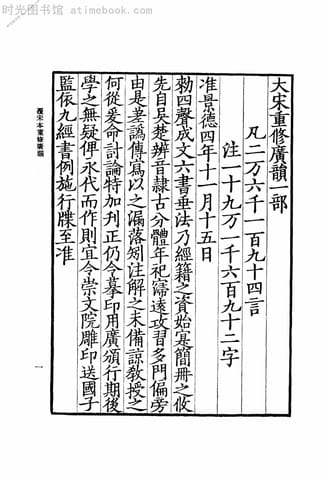 时光图书馆 atimebook.com
大宋重修廣韻一部
凡二万六千一百九十四言
注一十九万一千六百九十二字
准景德四年十一月十五日
勑四聲成文六書垂法乃經籍之資始寔簡冊之攸
先自吳楚辨音隸古分體年祀寖遠攻習多門偏旁
由是差譌傳寫以之漏落矧注解之未備諒教授之
何從爰命討論特加刊正仍令摹印用廣頒行期後
學之無疑俾永代而作則宜令崇文院雕印送國子
監依九經書例施行牒至准
覆宋本重修廣韻
一